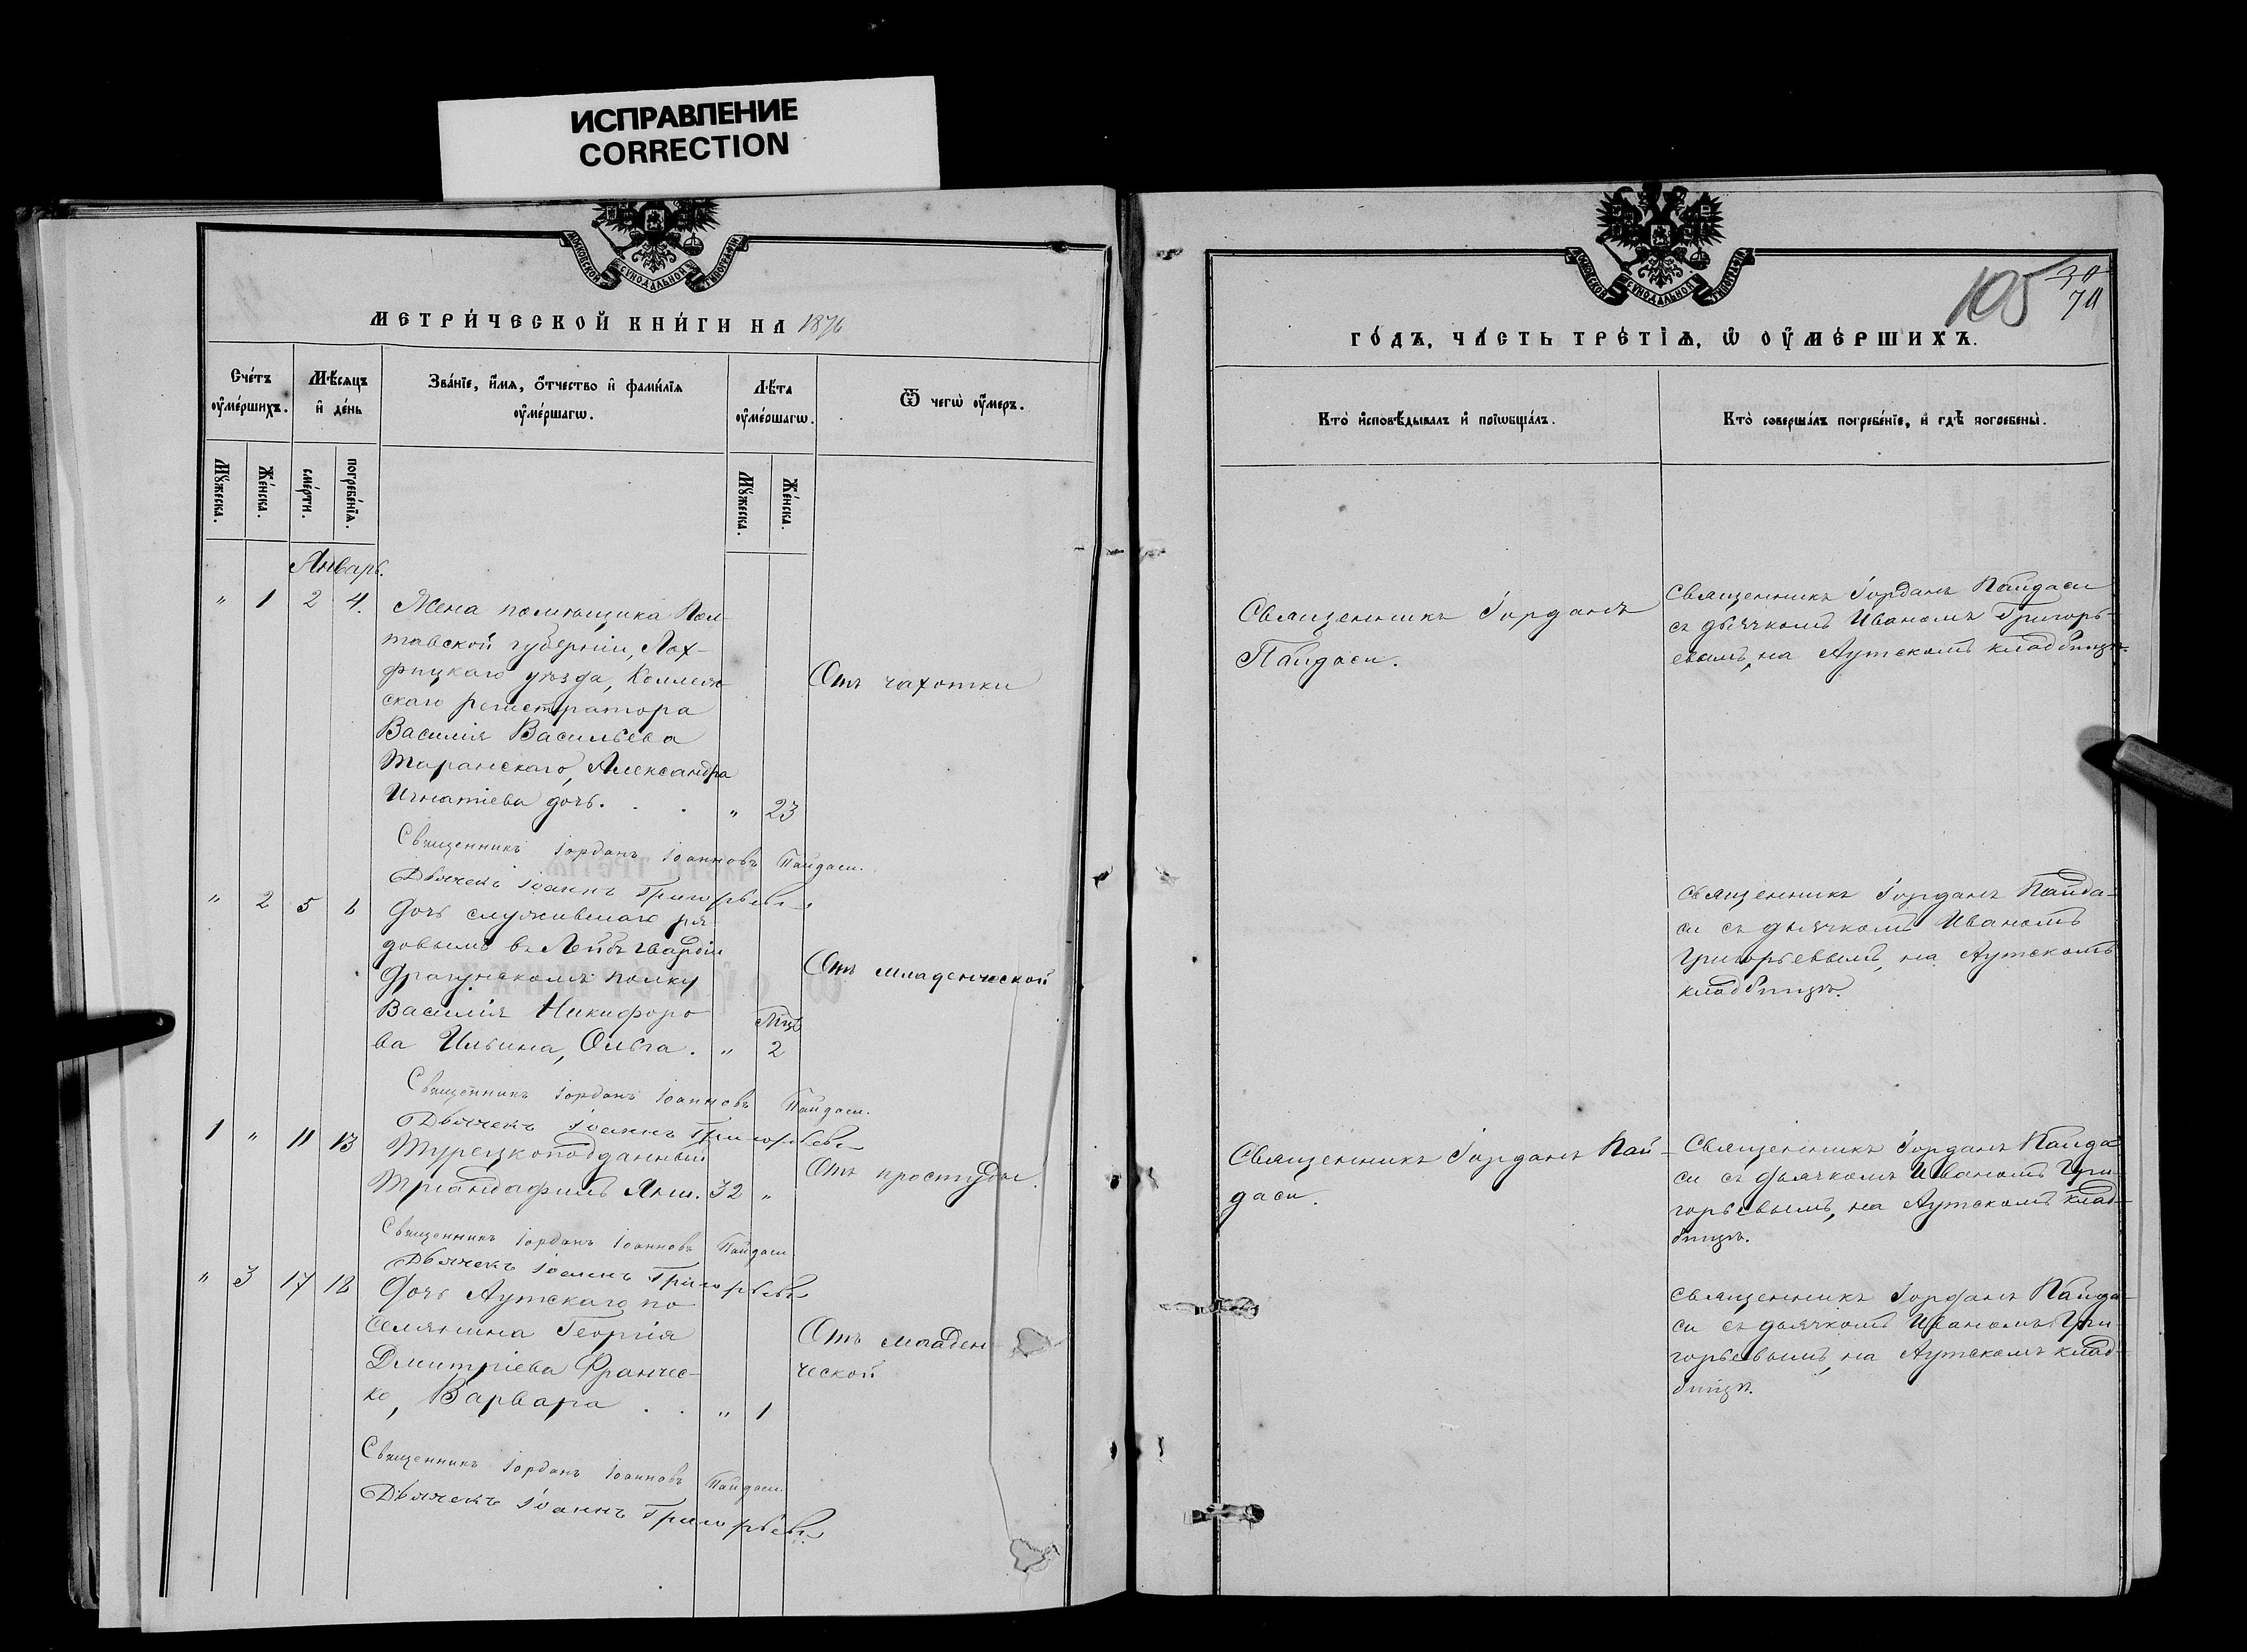 ИСПРАВЛЕНИЕ
CORRECTION
МОСКОВСКОЙ СѴНОДАЛЬНОЙ ТИПОГРАФІИ
МЕТРИ́ЧЕСКОЙ КНИ́ГИ НА 1876
Сче́тъ ᲂу҆ме́ршихъ.
Мѣ́сяцъ и҆ де́нь
Зва́нїе, и҆́мѧ, ѻ҆́тчество и҆ фами́лїѧ ᲂу҆ме́ршагѡ.
Лѣ́та ᲂу҆ме́ршагѡ.
Ѿ чегѡ̀ ᲂу҆́меръ.
Мꙋ́жеска.
Же́нска.
сме́рти.
погребе́нїѧ.
Мꙋ́жеска.
Же́нска.
Январь.
" 1 2 4. Жена помѣщика Пол-
тавской губерніи, Лох-
фицкаго уѣзда, Коллеж-
скаго регистратора
Василія Васильева
Таранскаго, Александра
Игнатіева дочь. . . " 23
Отъ чахотки
Священникъ Іорданъ Іоанновъ Пайдаси.
Дьячекъ Іоаннъ Григорьевъ
" 2 5 6 Дочь служившаго ря-
довымъ въ Лейбъ гвардіи
драгунскомъ полку
Василія Никифоро
ва Ильина, Ольга. " Мцв 2
Отъ младенческой
Священникъ Іорданъ Іоанновъ Пайдаси.
Дьячекъ Іоаннъ Григорьевъ
1 " 11 13 Турецкоподданный
Тріандафилъ Яни. 32 "
Отъ простуды.
Священникъ Іорданъ Іоанновъ Пайдаси
Дьячекъ Іоаннъ Григорьевъ
" 3 17 18 Дочь Аутскаго по
селянина Георгія
Дмитріева Францес-
ко, Варвара . . " 1
Отъ младен-
ческой
Священникъ Іорданъ Іоанновъ Пайдаси.
Дьячекъ Іоаннъ Григорьевъ
МОСКОВСКОЙ СѴНОДАЛЬНОЙ ТИПОГРАФІИ
105
ГО́ДЪ, ЧА́СТЬ ТРЕ́ТІѦ, Ѡ҆ ОУ҆МЕ́РШИХЪ.
Кто̀ и҆сповѣ́дывалъ и҆ прїѡбща́лъ.
Кто̀ соверша́лъ погребе́нїе, и҆ гдѣ̀ погребены̀.
Священникъ Іорданъ
Пайдаси.
Священникъ Іорданъ Пайдаси
съ дьячкомъ Иваномъ Григорь-
евымъ, на Аутскомъ кладбищѣ.
Священникъ Іорданъ Пайда-
си съ дьячкомъ Иваномъ
Григорьевымъ, на Аутскомъ
кладбищѣ.
Священникъ Іорданъ Пай-
даси.
Священникъ Іорданъ Пайда
си съ дьячкомъ Иваномъ Гри-
горьевымъ, на Аутскомъ клад-
бищѣ.
Священникъ Іорданъ Пайда-
си съ дьячкомъ Иваномъ Гри-
горьевымъ, на Аутскомъ клад-
бищѣ.